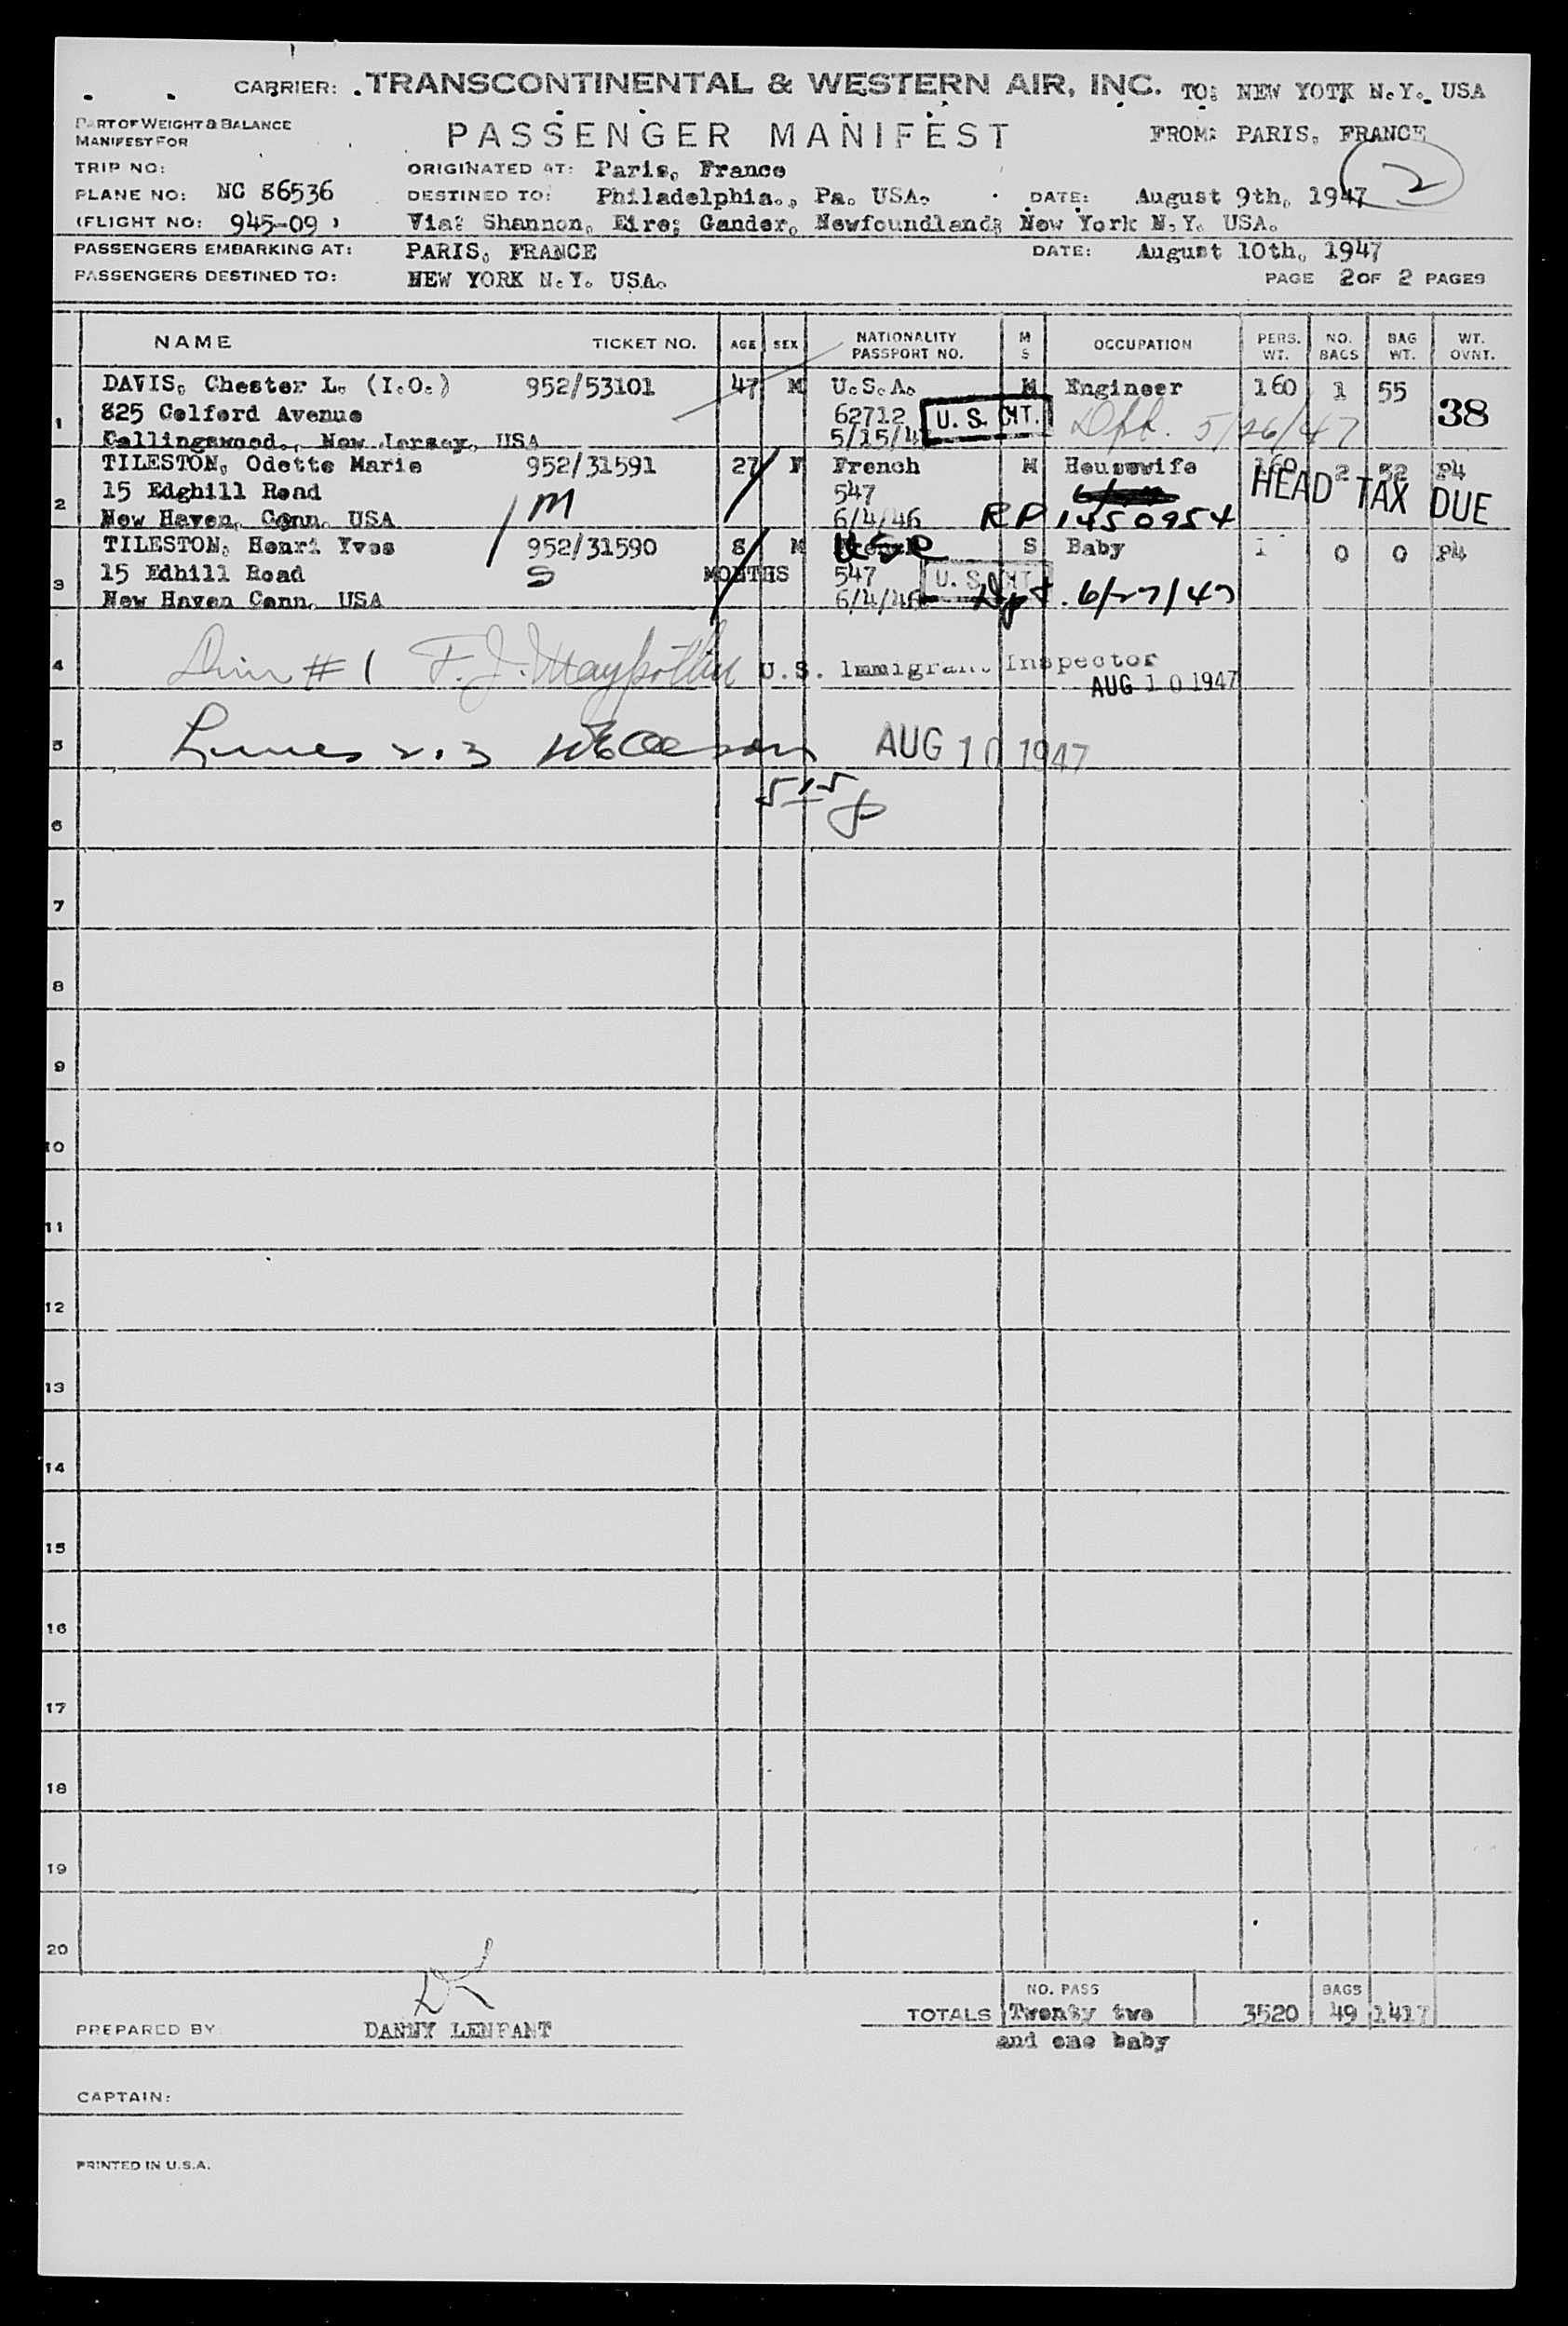 CARRIER: TRANSCONTINENTAL & WESTERN AIR, INC. TO: NEW YOTK N.Y. USA
PART OF WEIGHT & BALANCE
MANIFEST FOR
PASSENGER MANIFEST FROM: PARIS, FRANCE
2
TRIP NO: ORIGINATED AT: Paris, France
PLANE NO: NC 86536 DESTINED TO: Philadelphia., Pa. USA. DATE: August 9th, 1947
(FLIGHT NO: 945-09 ) Via: Shannon, Eire; Gander, Newfoundland; New York N.Y. USA.
PASSENGERS EMBARKING AT: PARIS, FRANCE DATE: August 10th, 1947
PASSENGERS DESTINED TO: NEW YORK N.Y. USA. PAGE 2 OF 2 PAGES
NAME TICKET NO. AGE SEX NATIONALITY PASSPORT NO. M S OCCUPATION PERS. WT. NO. BAGS BAG WT. WT. OVNT.
1 DAVIS, Chester L. (I.O.) 952/53101 47 M U.S.A. M Engineer 160 1 55 38
825 Colford Avenue 62712 U.S. CIT. 5/26/47
Collingswood., New Jersey, USA 5/15/4
2 TILESTON, Odette Marie 952/31591 27 F French M Housewife 160 2 52 P4
15 Edghill Road M 547 HEAD TAX DUE
New Haven, Conn. USA 6/4/46 RP 1450954
3 TILESTON, Henri Yves 952/31590 8 MONTHS M S Baby 0 0 P4
15 Edhill Road S 547 U.S. CIT.
New Haven Conn. USA 6/4/46 6/27/47
4 # 1 F. J. U.S. Immigrant Inspector
AUG 10 1947
5 Lines 2.3 AUG 10 1947
515 p
6
7
8
9
10
11
12
13
14
15
16
17
18
19
20
NO. PASS BAGS
TOTALS Twenty two 3520 49 1417
and one baby
PREPARED BY: DANNY LENFANT
CAPTAIN:
PRINTED IN U.S.A.